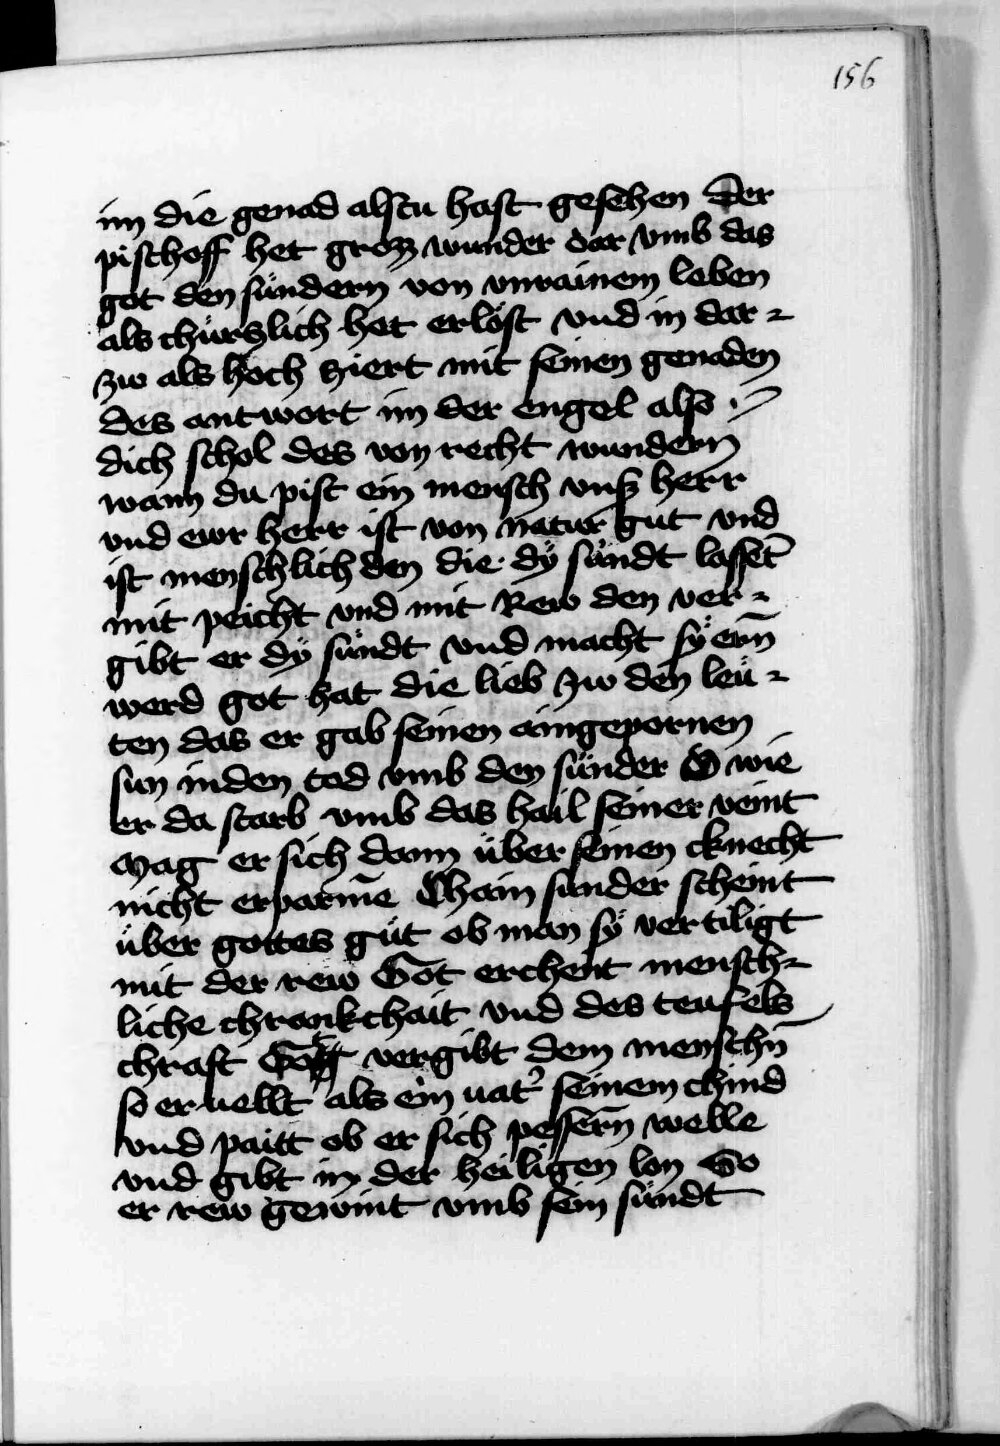 156
im die genad alstu hast gesehen Der
pischoff het groz wunder dar vmb das
got den sündern von vnrainem leben
als chürczlich het erlöst vnd in dar-
zw als hoch ziert mit seinen genaden
des antwort im der engel also
dich schol des von recht wundern
wann du pist ein mensch vnß herr
vnd ewr herr ist von natur gut vnd
ist menschlich den die dÿ sündt lasset
mit peicht vnd mit Rew den ver-
gibt er dÿ sündt vnd macht sÿ ern̄
werd got hat die lieb zw den leü-
ten das er gab seinen aingepornen
sun inden tod vmb den sünder O wie
er da starb vmb das hail seiner veint
Mag er sich dann über seinen cknecht
nicht erparm̄e Chain sunder scheint
über gottes güt ob man sÿ vertiligt
mit der rew Got erchent mensch-
liche chrankchait vnd des teufels
chraft Got vergibt dem menschn̄
so er uellt als ein uat̛ seinem chind
vnd paitt ob er sich pessern̄ welle
vnd gibt in der heiligen lon So
er rew gewint vmb sein sündt